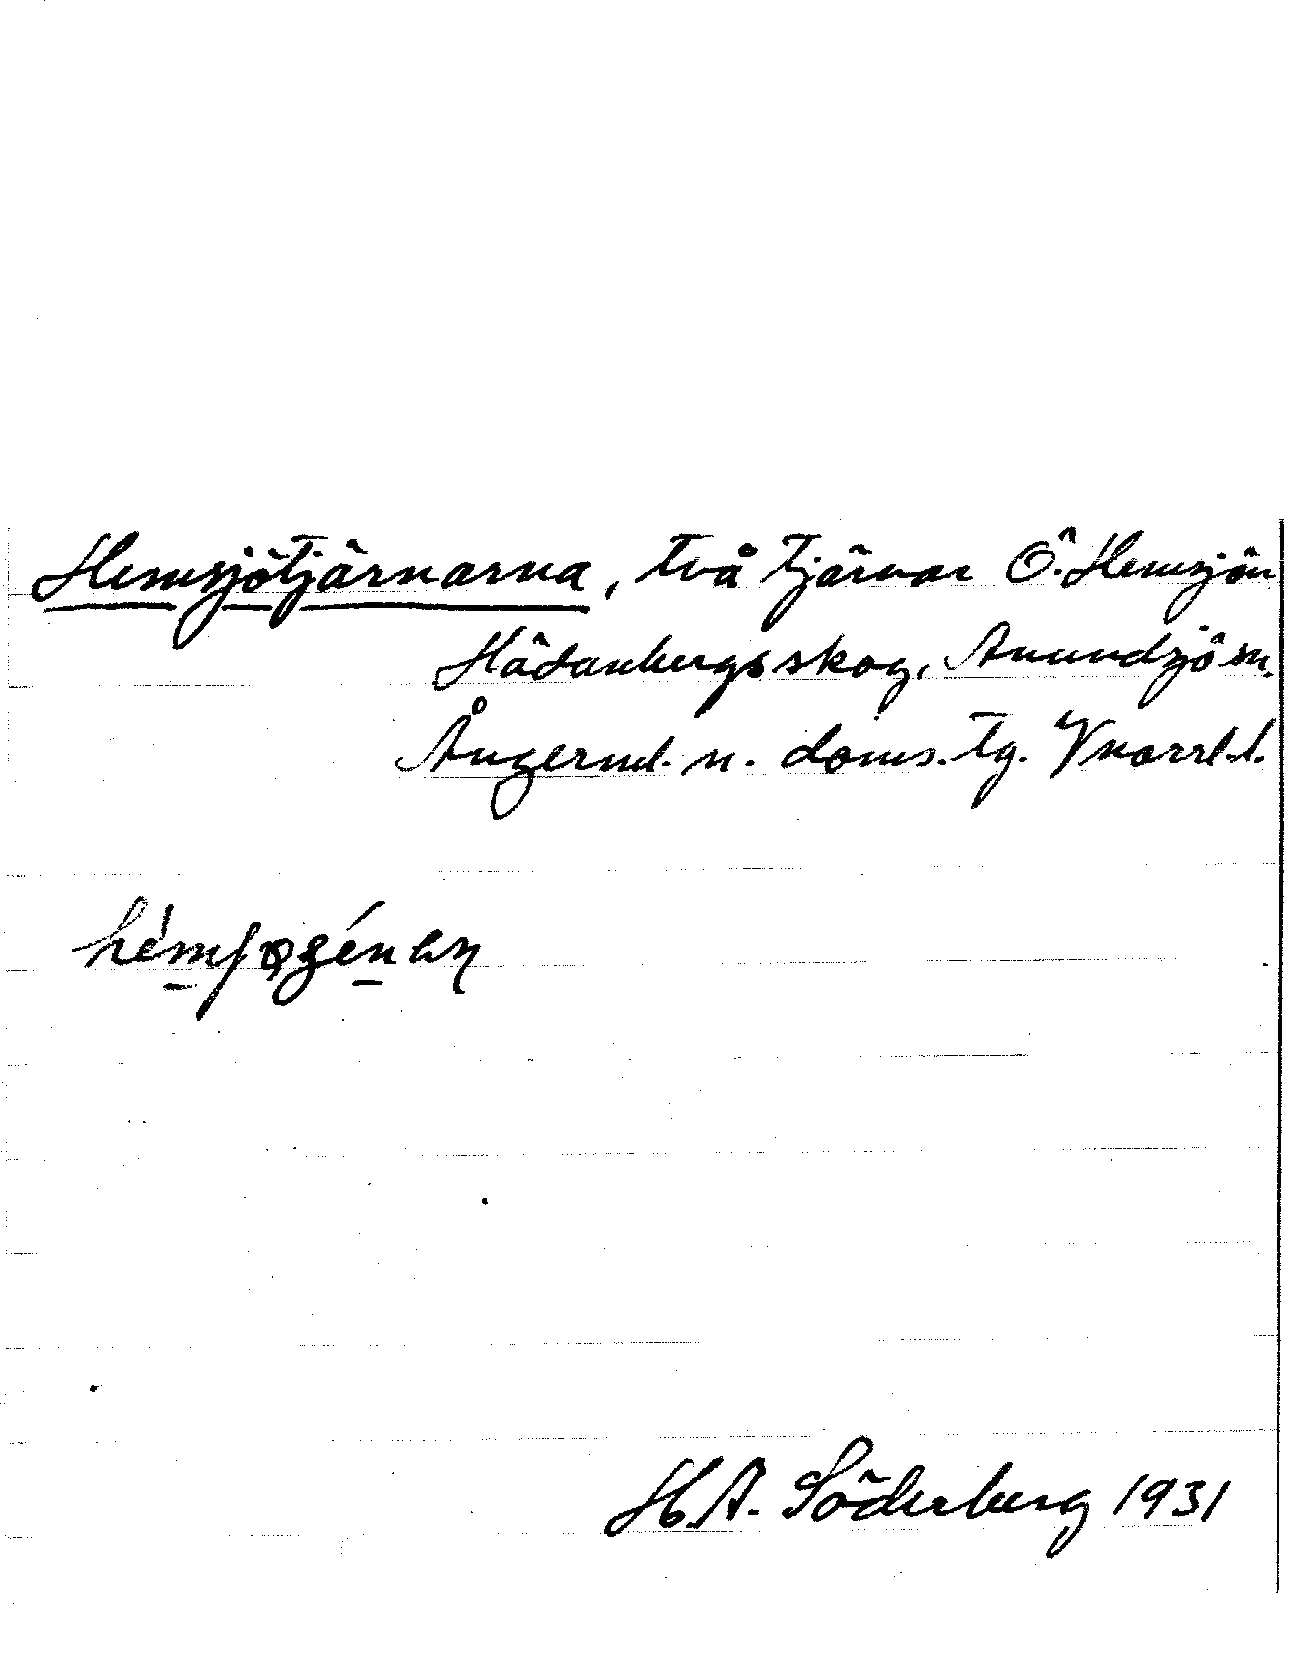 Hemsjötjärnarna, två tjärnar Ö. Hemsjön
Hädanbergsskog, Anundsjö sn.
Ångerml. n. doms. tg. Vnorrl. l.
H.A. Söderberg 1931